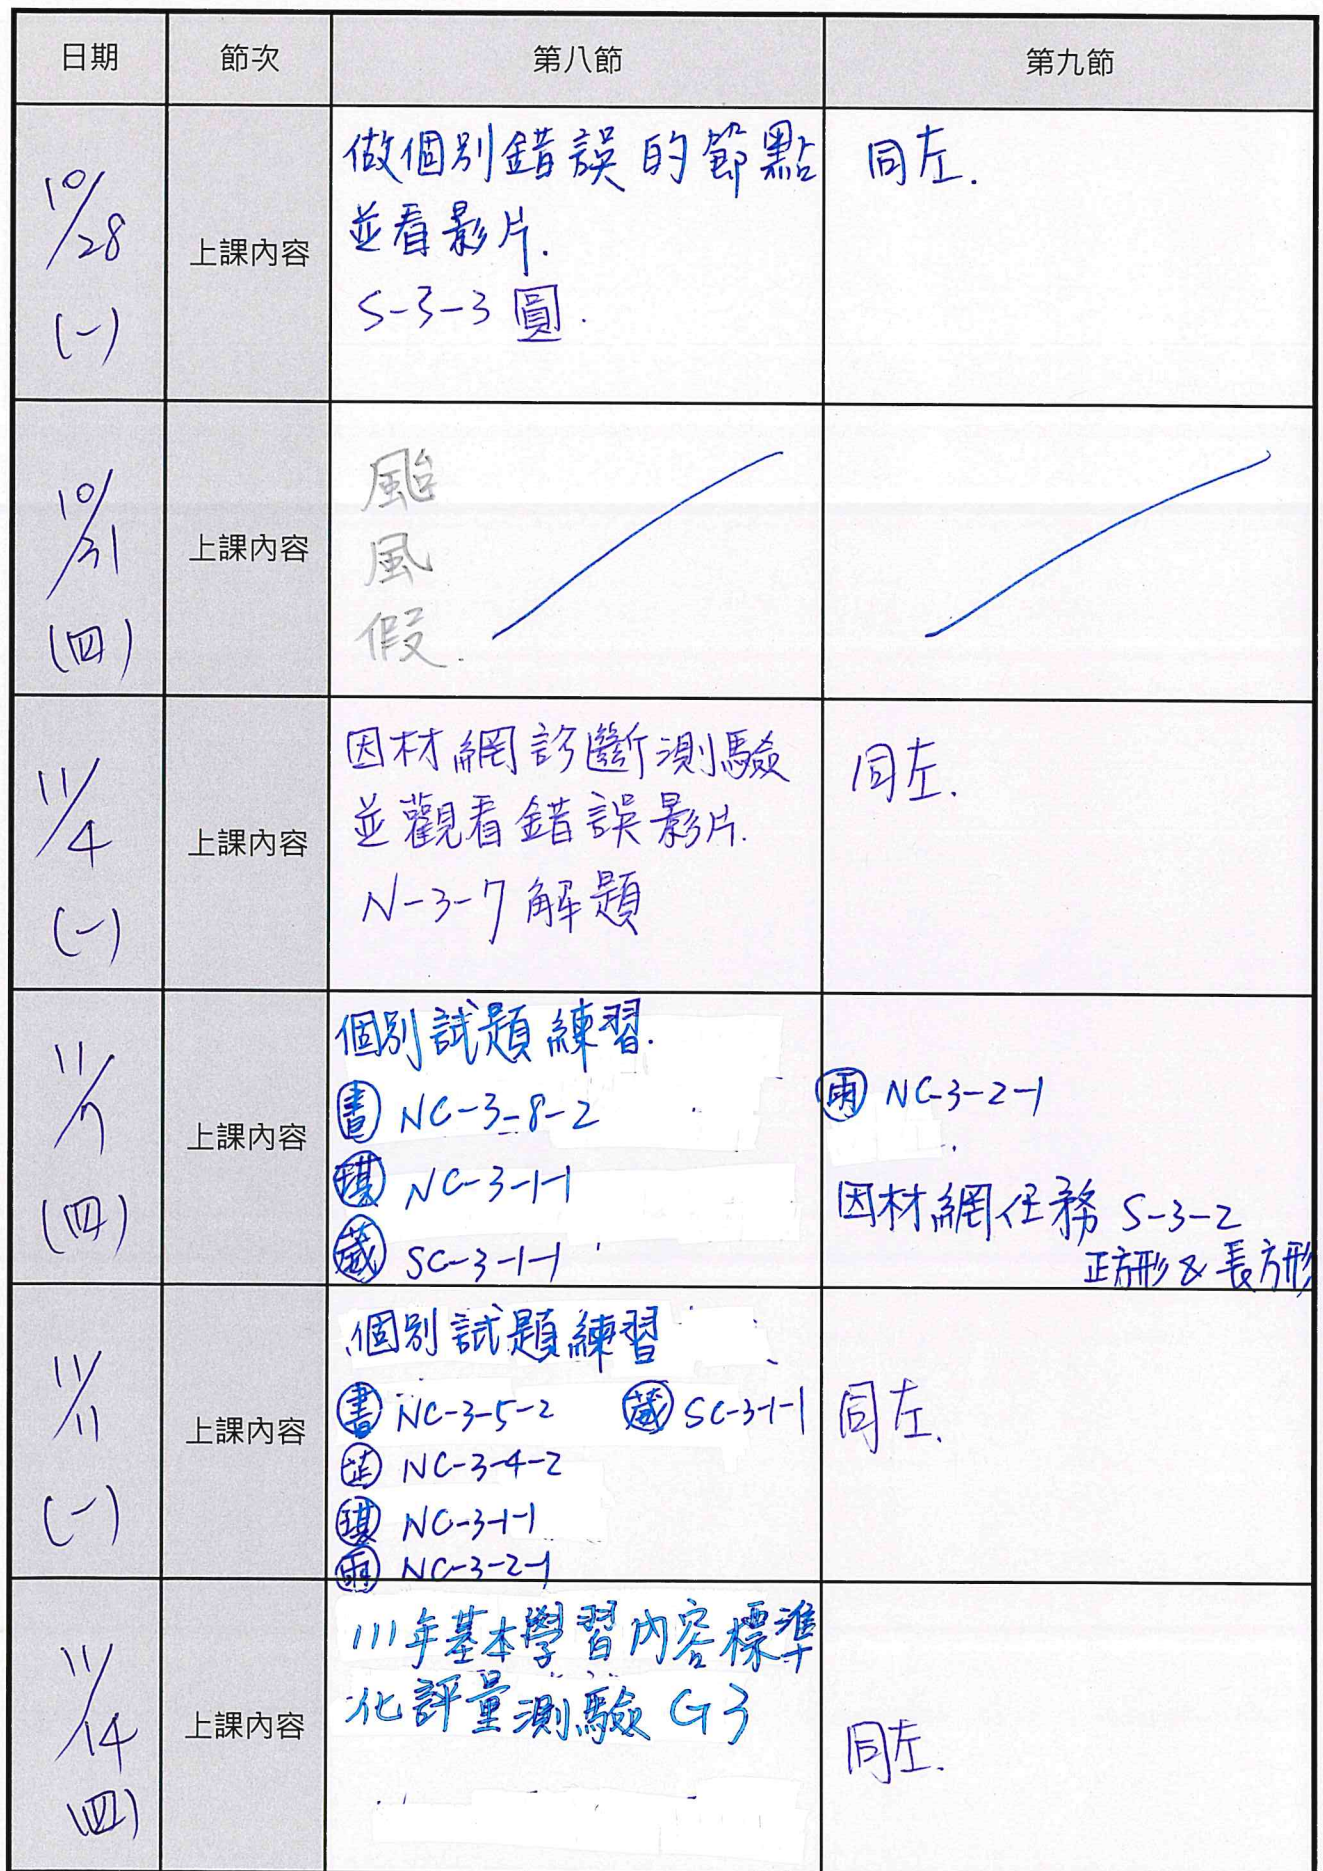 日期 節次 第八節 第九節
10/28 (一) 上課內容
做個別錯誤的節點
並看影片.
S-3-3 圓.
同左.
10/31 (四) 上課內容
颱
風
假.
11/4 (一) 上課內容
因材網診斷測驗
並觀看錯誤影片.
N-3-7 解題
同左.
11/7 (四) 上課內容
個別試題練習.
書 NC-3-8-2
琪 NC-3-1-1
葳 SC-3-1-1
雨 NC-3-2-1
因材網任務 S-3-2
正方形 & 長方形
11/11 (一) 上課內容
個別試題練習
書 NC-3-5-2 葳 SC-3-1-1
NC-3-4-2
琪 NC-3-1-1
雨 NC-3-2-1
同左.
11/14 (四) 上課內容
111年基本學習內容標準
化評量測驗 G3
同左.